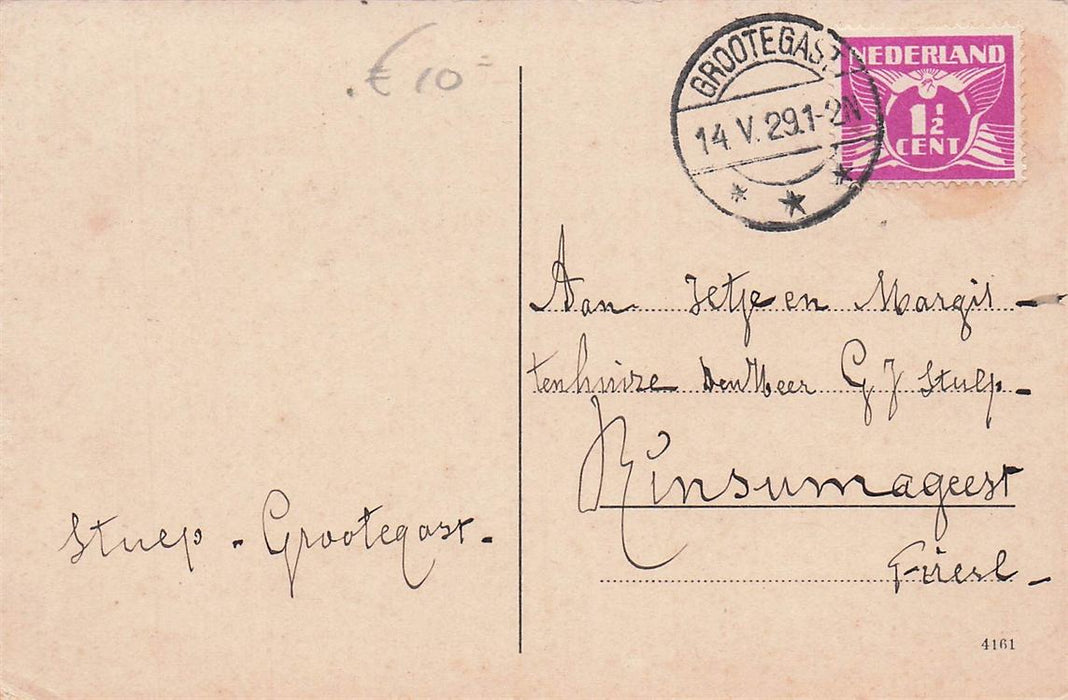 € 10=
GROOTEGAST
14 V. 29.1-2N
NEDERLAND
1½
CENT
Aan Jetje en Margit -
tenhuize den Heer G J Stulp -
Rinsumageest
Friesl -
Stulp - Grootegast -
4161